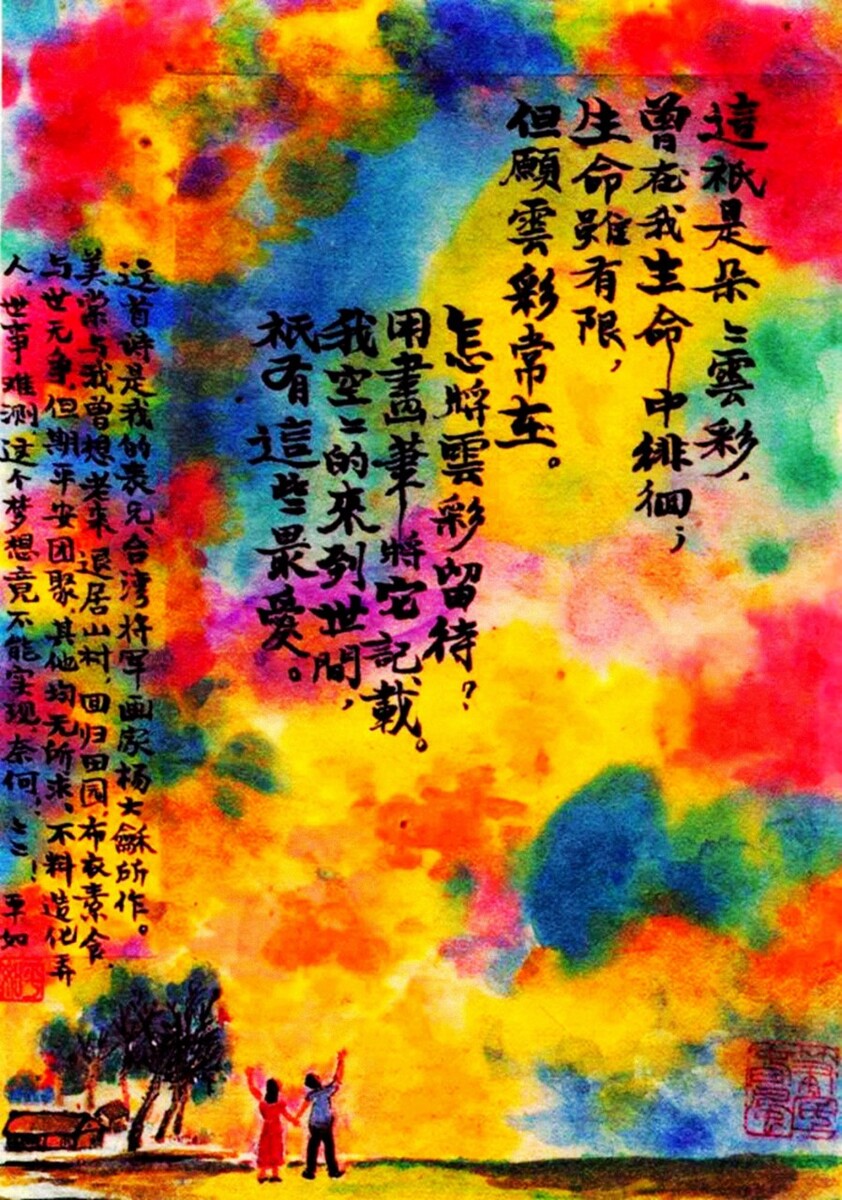 這祇是朵〻雲彩，
曾在我生命中徘徊；
生命雖有限，
但願雲彩常在。
怎將雲彩留待？
用畫筆將它記載。
我空〻的來到世間，
祇有這些最愛。
这首诗是我的表兄、台湾将军画家杨大龢所作。
美棠与我曾想老来退居山村，回归田园，布衣素食，
与世无争，但期平安团聚，其他均无所求。不料造化弄
人，世事难测，这个梦想竟不能实现，奈何！平如